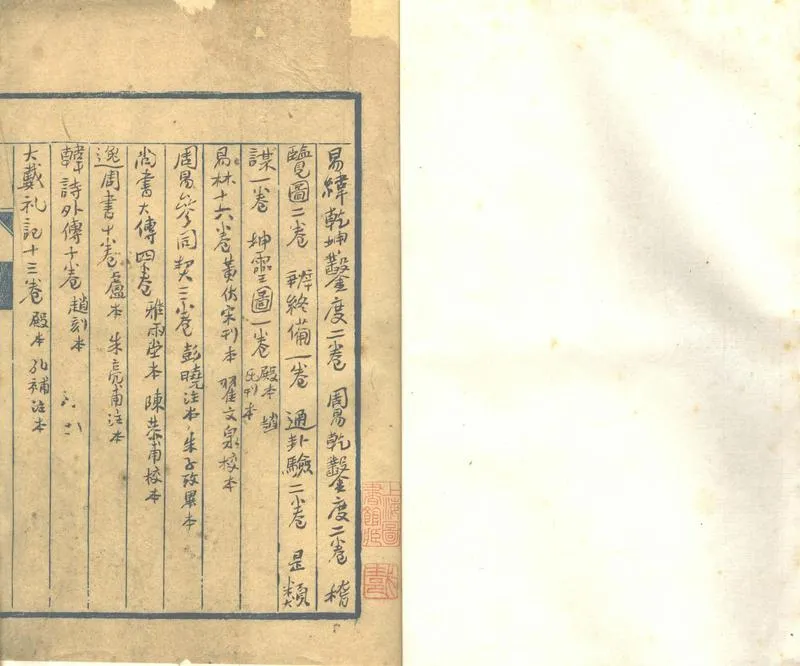 易緯乾坤鑿度二卷 周易乾鑿度二卷 稽
覽圖二卷 辨終備一卷 通卦驗二卷 是類
謀一卷 坤靈圖一卷 殿本 趙氏刊本
易林十六卷 黃仿宋刊本 翟文泉校本
周易參同契三卷 彭曉注本 朱子攷異本
尚書大傳四卷 雅雨堂本 陳恭甫校本
逸周書十卷 盧本 朱亮甫注本
韓詩外傳十卷 趙刻本
大戴礼記十三卷 殿本 孔補注本
上海圖書館藏